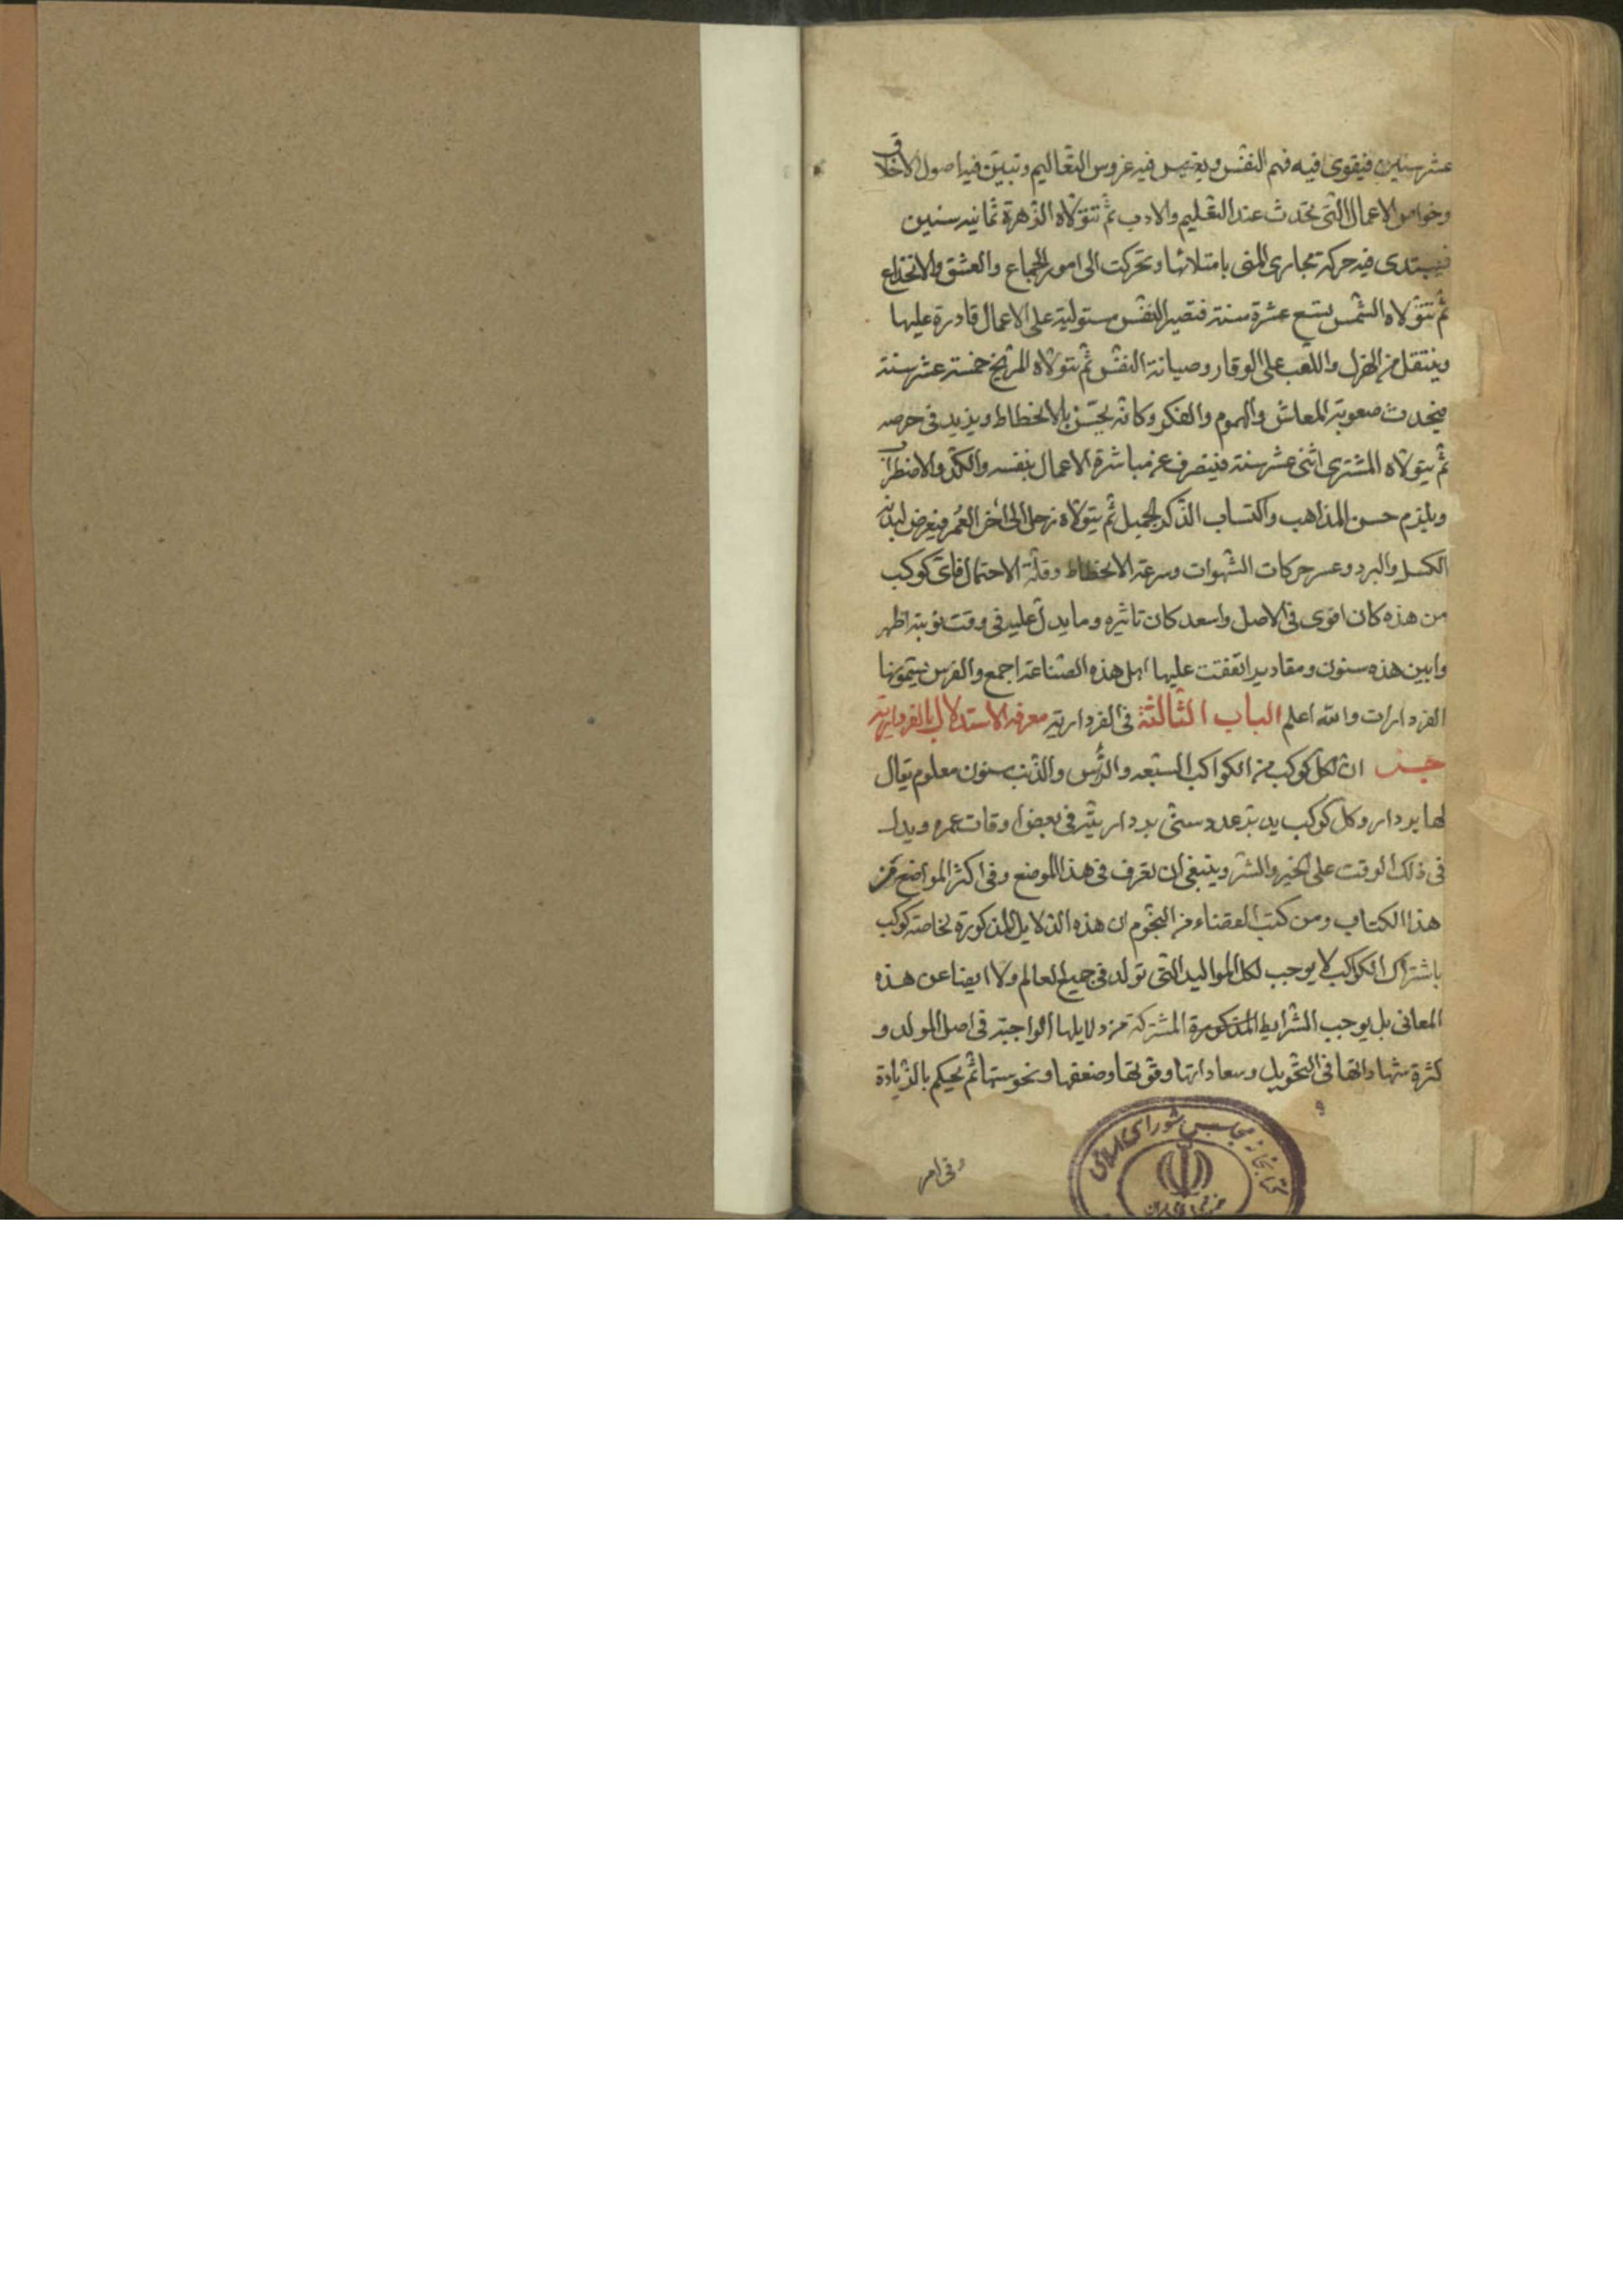 عشر سنين فيقوى فيه فهم النفس ويغرس فيه غروس التعاليم وتبين فيه اصول الاخلاق
وخواص الاعمال التى تحدث عند التعليم والادب ثم تتولاه الزهرة ثمانيه سنين
فيبتدى فيه حركة مجارى المنى بامتلائها وتحركت الى امور الجماع والعشق والانخداع
ثم تتولاه الشمس تسع عشرة سنة فتصير النفس مستولية على الاعمال قادرة عليها
وينتقل من الهزل واللعب على الوقار وصيانة النفس ثم تتولاه المريخ خمسة عشر سنة
فيحدث صعوبة المعاش والهموم والفكر وكانه يحس بالانحطاط ويزيد فى حرصه
ثم يتولاه المشترى اثنى عشر سنة فينصرف عن مباشرة الاعمال بنفسه والكد والاضطراب
ويلزم حسن المذاهب واكتساب الذكر الجميل ثم يتولاه زحل الى اخر العمر فيعرض لبدنه
الكسل والبرد وعسر حركات الشهوات وسرعة الانحطاط وقلة الاحتمال فاى كوكب
من هذه كان اقوى فى الاصل واسعد كان تاثيره وما يدل عليه فى وقت نوبته اظهر
وابين هذه سنون ومقادير اتفقت عليها اهل هذه الصناعة اجمع والفرس يسمونها
الفردارات والله اعلم الباب الثالثة فى الفردارية معرفة الاستدلال بالفردارية
ان لكل كوكب من الكواكب السبعه والرأس والذنب سنون معلوم يقال
لها بردار وكل كوكب يدبر عدد سنى بردار يثير فى بعض اوقات عمره ويدل
فى ذلك الوقت على الخير والشر وينبغى ان تعرف فى هذا الموضع وفى اكثر المواضع من
هذا الكتاب ومن كتب القضاء من النجوم ان هذه الدلايل المذكورة لخاصة كوكب
باشتراك الكواكب لا يوجب لكل المواليد التى تولد فى جميع العالم ولا ايضا عن هذه
المعانى بل يوجب الشرايط المذكورة المشتركة من دلايلها الواجبة فى اصل المولد و
كثرة شهاداتها فى التحويل وسعاداتها وقوتها وضعفها ونحوستها ثم يحكم بالزيادة
فى امر
كتابخانه مجلس شوراى اسلامى